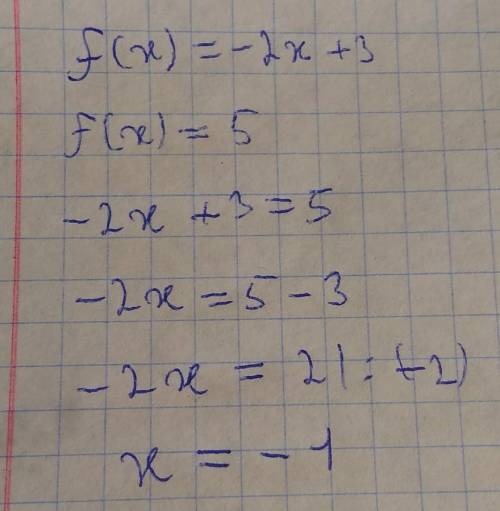 f(x) = -2x + 3
f(x) = 5
-2x + 3 = 5
-2x = 5 - 3
-2x = 2 | : (-2)
x = -1